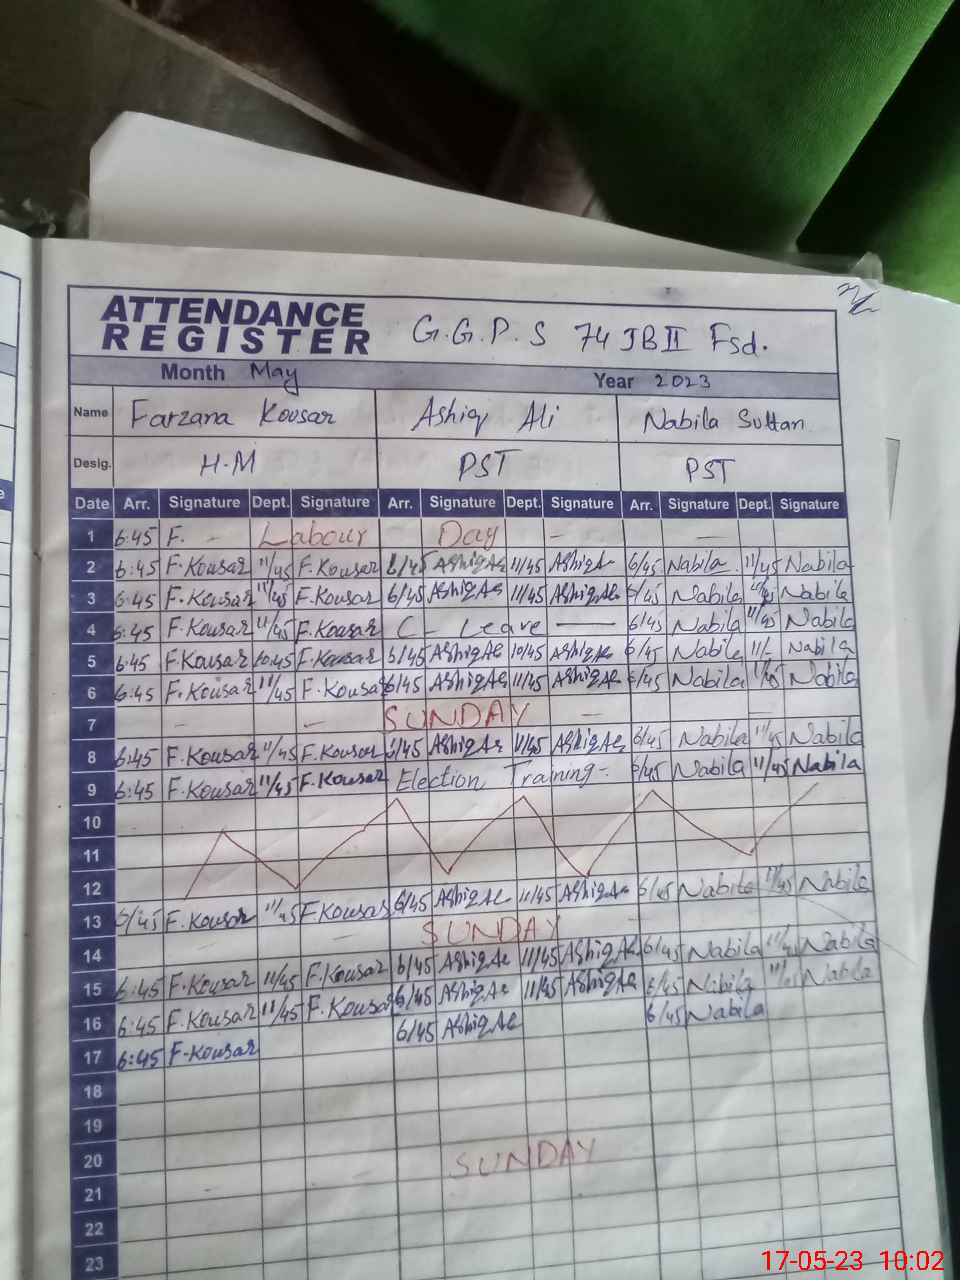 ATTENDANCE
REGISTER G.G.P.S 74 JB II Fsd.
Month May Year 2023
Name Farzana Kousar Ashiq Ali Nabila Sultan
Desig. H.M PST PST
Date Arr. Signature Dept. Signature Arr. Signature Dept. Signature Arr. Signature Dept. Signature
1 6:45 F. - Labour Day - -
2 6:45 F.Kousar 11/45 F.Kousar 6/45 Ashiq Ali 11/45 Ashiq A 6/45 Nabila 11/45 Nabila
3 6:45 F.Kousar 11/45 F.Kousar 6/45 Ashiq Ali 11/45 Ashiq Ali 6/45 Nabila Nabila
4 6:45 F.Kousar 11/45 F.Kousar C - Leave — 6/45 Nabila 11/45 Nabila
5 6:45 F.Kousar 10:45 F.Kousar 6/45 Ashiq Ali 10/45 Ashiq Ali 6/45 Nabila 11/ Nabila
6 6:45 F.Kousar 11/45 F.Kousar 6/45 Ashiq Ali 11/45 Ashiq Ali 6/45 Nabila 11/45 Nabila
7 - - SUNDAY - -
8 6:45 F.Kousar 11/45 F.Kousar 6/45 Ashiq Ali 11/45 Ashiq Ali 6/45 Nabila 11/45 Nabila
9 6:45 F.Kousar 11/45 F.Kousar Election Training - 6/45 Nabila 11/45 Nabila
10
11
12
13 6/45 F.Kousar 11/45 F.Kousar 6/45 Ashiq Ali 11/45 Ashiq Ali 6/45 Nabila 11/45 Nabila
14 - - SUNDAY
15 6:45 F.Kousar 11/45 F.Kousar 6/45 Ashiq Ali 11/45 Ashiq Ali 6/45 Nabila 11/45 Nabila
16 6:45 F.Kousar 11/45 F.Kousar 6/45 Ashiq Ali 11/45 Ashiq Ali 6/45 Nabila 11/45 Nabila
17 6:45 F-Kousar 6/45 Ashiq Ali 6/45 Nabila
18
19
20
21 SUNDAY
22
23
17-05-23 10:02